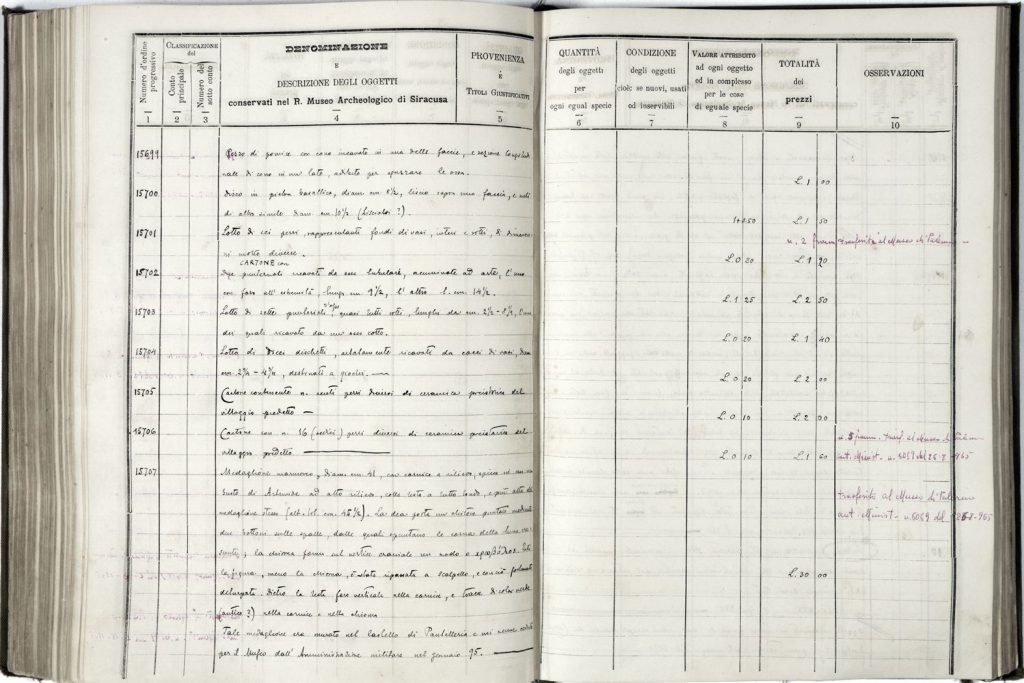 Numero d'ordine progressivo
CLASSIFICAZIONE del
Conto principale
Numero del sotto conto
DENOMINAZIONE
E
DESCRIZIONE DEGLI OGGETTI
conservati nel R. Museo Archeologico di Siracusa
PROVENIENZA
E
TITOLI GIUSTIFICATIVI
QUANTITÀ
degli oggetti
per
ogni egual specie
CONDIZIONE
degli oggetti
cioè: se nuovi, usati
od inservibili
VALORE ATTRIBUITO
ad ogni oggetto
ed in complesso
per le cose
di eguale specie
TOTALITÀ
dei
prezzi
OSSERVAZIONI
1 2 3 4 5 6 7 8 9 10
15699 Pezzo di pomice con cono incavato in una delle faccie, e sezione longitudi
nale di cono in un lato, adibito per aguzzare le ossa.
L. 1 00
15700 Disco in pietra basaltica, diam. cm. 8½, liscio sopra una faccia, e metà
di altro simile diam. cm. 10½ (Lisciatoi?).
1+0.50 L. 1 50
15701 Lotto di sei pezzi, rappresentanti fondi di vasi, interi e rotti, di dimensio
ni molto diverse.
L. 0 20 L. 1 20
n. 2 framm. trasferiti al Museo di
15702 CARTONE con
Due punteruoli ricavati da ossa tubulari, acuminate ad arte, l'uno
con foro all'estremità, lungo cm 9½, l'altro l. cm. 14½.
L. 1 25 L. 2 50
15703 Lotto di sette punteruoli d'osso, quasi tutti rotti, lunghi da cm. 2½ - 8½, l'uno
dei quali ricavato da un osso cotto.
L. 0 20 L. 1 40
15704 Lotto di dieci dischetti, artatamente ricavati da cocci di vasi, diam.
cm. 2¾ - 4¾, destinati a giochi. —
L. 0 20 L. 2 00
15705 Cartone contenente n. venti pezzi diversi di ceramica preistorica del
villaggio predetto —
L. 0 10 L. 2 00
15706 Cartone con n. 16 (sedici) pezzi diversi di ceramica preistorica del
villaggio predetto.
L. 0 10 L. 1 60
n. 5 framm. trasf. al Museo di
aut. Minist. n. 8089 del 965
15707 Medaglione marmoreo, diam. cm. 41, con cornice a rilievo, entro
busto di Artemide ad alto rilievo, colla testa a tutto tondo, e parte alta del
medaglione stesso (alt. tot. cm. 45½). La dea porta un chitone puntato mediante
due bottoni sulle spalle, dalle quali spuntano le corna della luna cre
scente; la chioma forma sul vertice craniale un nodo o κρωβύλος. Tutta
la figura, meno la chioma, è stata ripassata a scalpello, e così fortemente
deturpata. Dietro la testa foro verticale nella cornice, e tracce di color verde
(antico?) nella cornice e nella chioma.
Tale medaglione era murato nel castello di Pantelleria e mi venne ceduto
per il Museo dall'Amministrazione militare nel gennaio 95. —
L. 30 00
trasferito al Museo di Palermo
aut. Minist. n. 8089 del 965